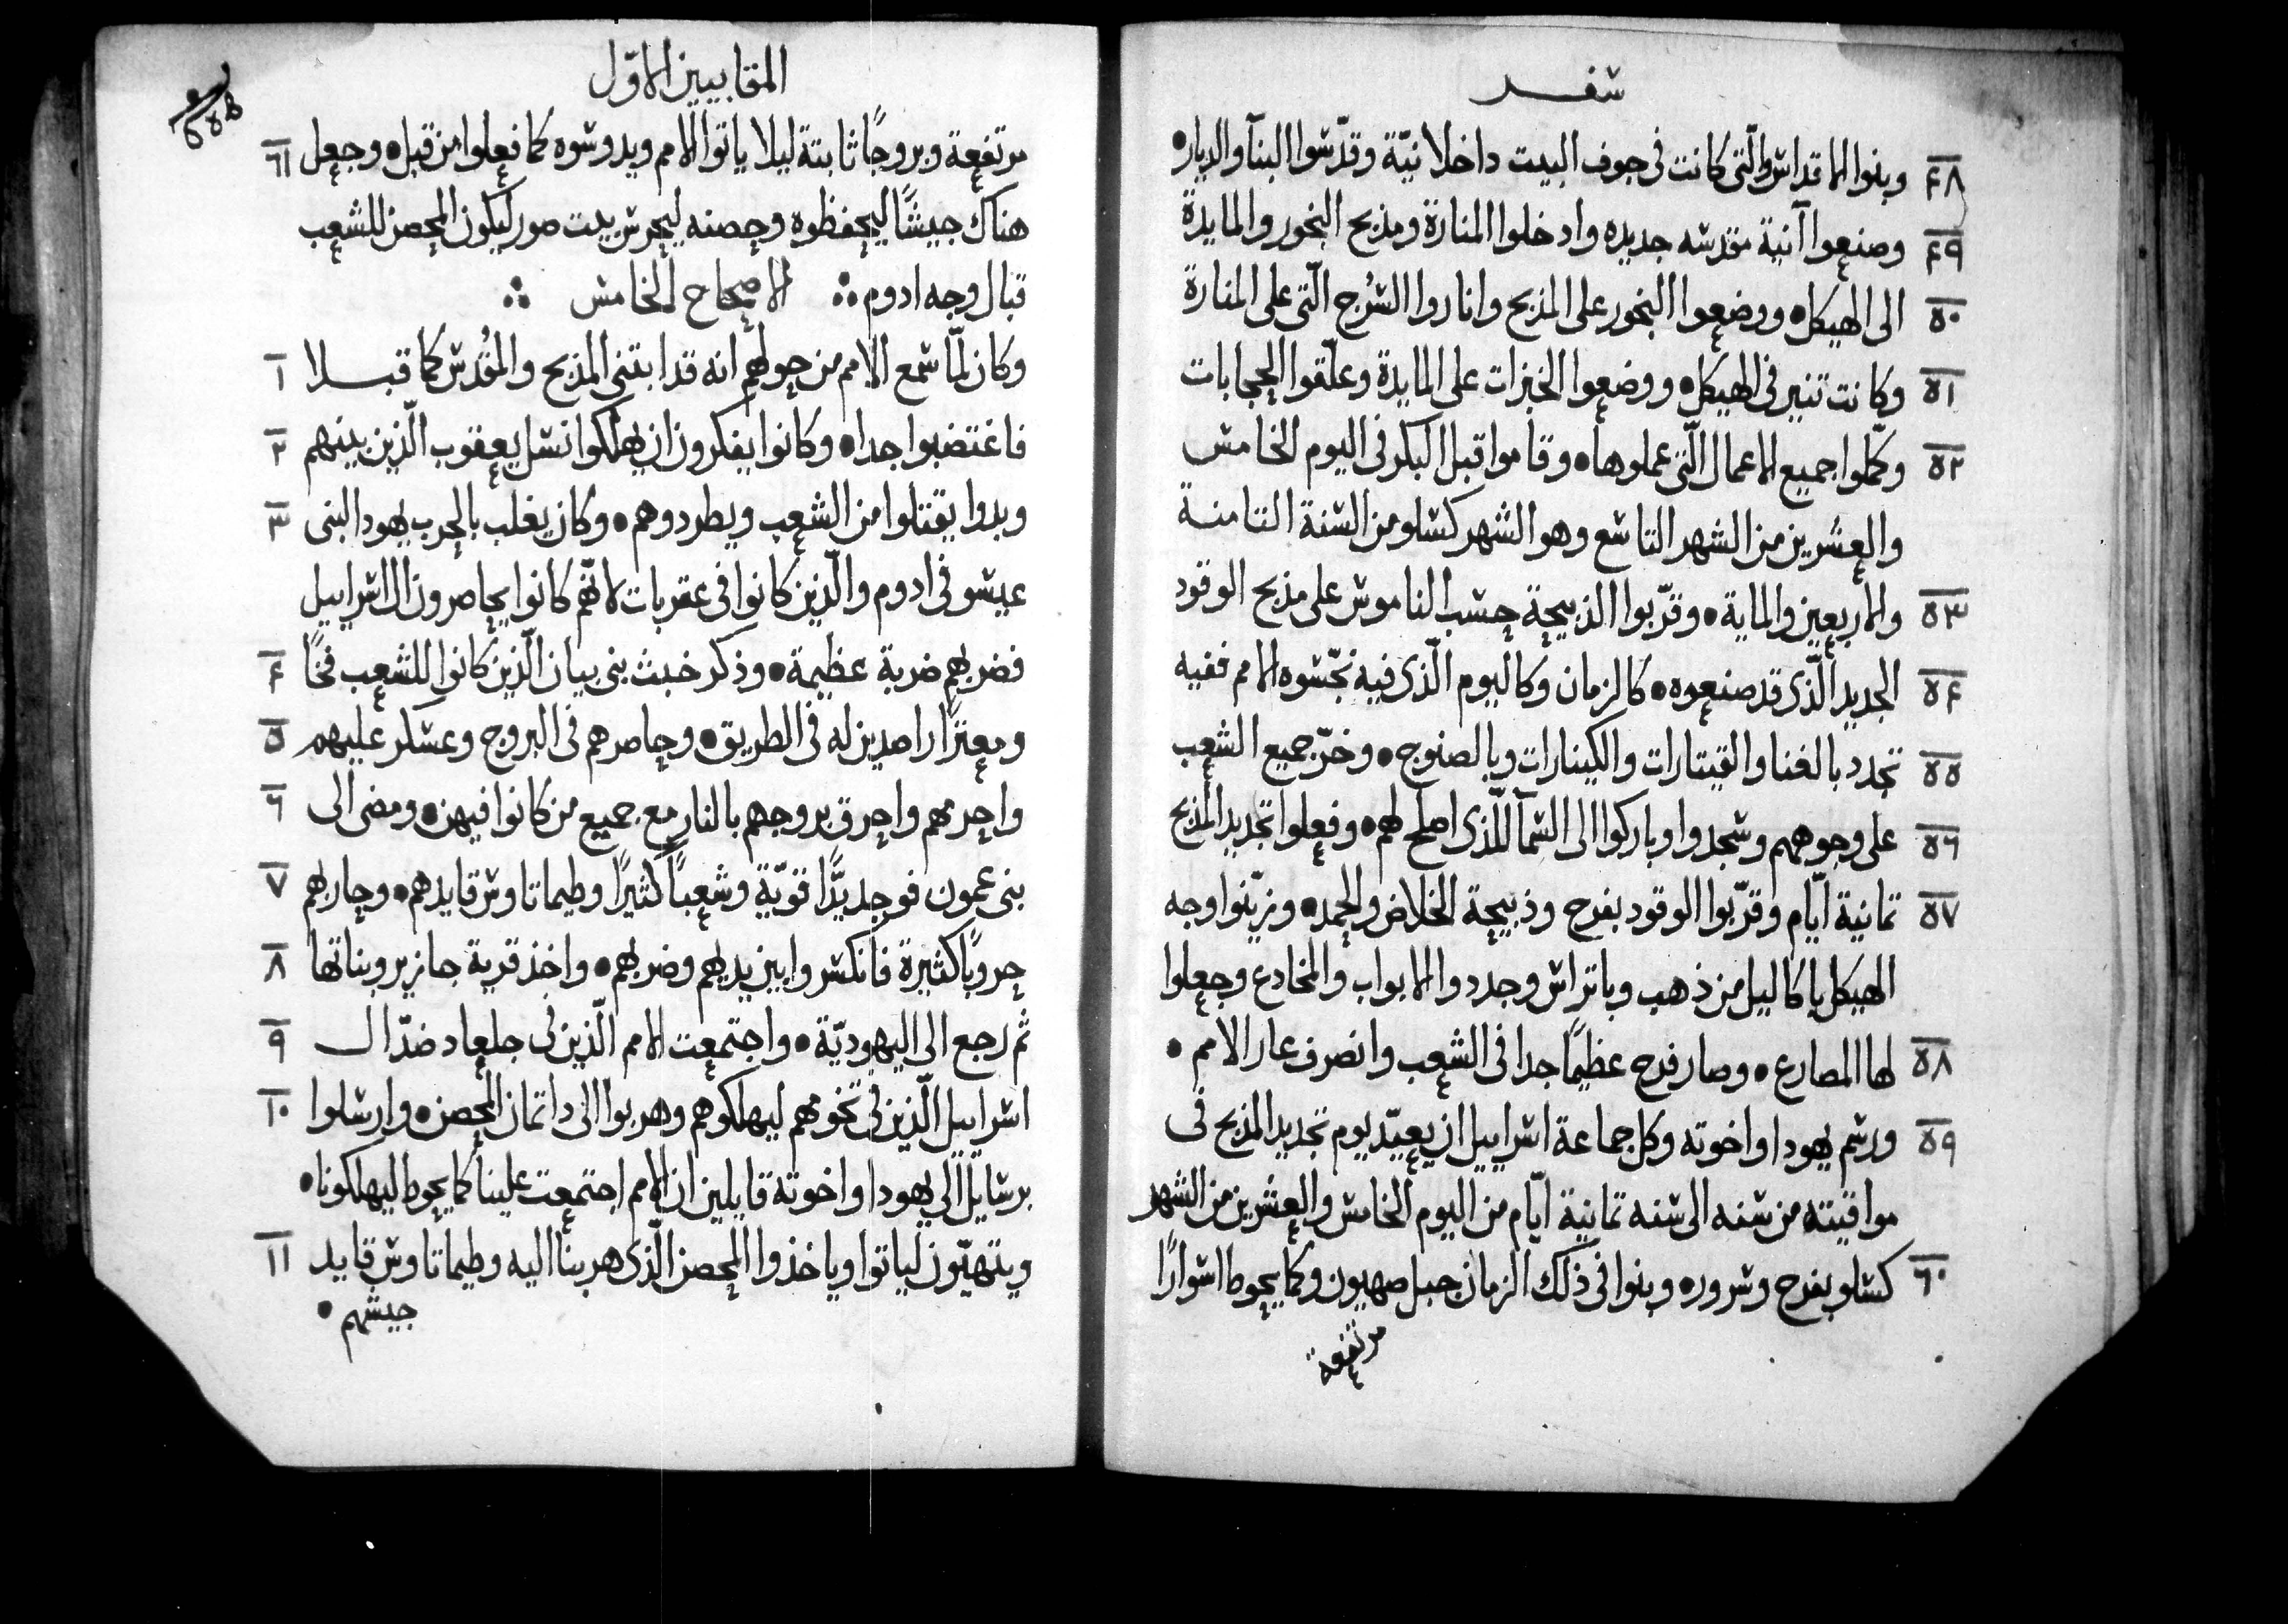 سفر
٤٨ وبنوا الاقداس والتى كانت فى جوف البيت داخلانيّة وقدّسوا البنآ والدياره
٤٩ وصنعوا آنية مقدسه جديده وادخلوا المنارة ومذبح البخور والمايدة
٥٠ الى الهيكل • ووضعوا البخور على المذبح واناروا السُرج الّتى على المنارة
٥١ وكانت تنير فى الهيكل • ووضعوا الخبزات على المايدة وعلّقوا الحجابات
٥٢ وكمّلوا جميع الاعمال الّتى عملوها • وقاموا قبل البكر فى اليوم الخامس
والعشرين من الشهر التاسع وهو الشهر كسلو من السنة الثامنة
٥٣ والاربعين والماية • وقرّبوا الذبيحة حسب الناموس على مذبح الوقود
٥٤ الجديد الّذى قد صنعوه • كالزمان وكاليوم الّذى فيه نجّسوه الامم ففيه
٥٥ تجدد بالغنا والقيتارات والكينارات وبالصنوج • وخرّ جميع الشعب
٥٦ على وجوههم وسجدوا وباركوا الى السمآ للّذى اصلح لهم • وفعلوا تجديد المذبح
٥٧ ثمانية ايّام وقرّبوا الوقود بفرح وذبيحة الخلاص والحمد • وزيّنوا وجه
الهيكل باكاليل من ذهب وباتراس وجددوا الابواب والمخادع وجعلوا
٥٨ لها المصارع • وصار فرح عظيمًا جدا فى الشعب وانصرف عار الامم •
٥٩ ورسم يهودا واخوته وكل جماعة اسراييل ان يعيّد يوم تجديد المذبح فى
مواقيته من سنه الى سنه ثمانية ايّام من اليوم الخامس والعشرين من الشهر
٦٠ كسلو بفرح وسرور • وبنوا فى ذلك الزمان جبل صهيون وكما يحوط اسوارًا
مرتفعة
المقابيين الاوّل
مرتفعة وبروجًا ثابتة ليلا ياتوا الامم ويدوسوه كما فعلوا من قبل • وجعل ٦١
هناك جيشًا ليحفظوه وحصنه ليحرس بيت صور ليكون المحصن للشعب
قبال وجه ادوم ∴ الاصحاح الخامس ∴
وكان لمّا سمع الامم من حولهم انه قد ابتنى المذبح والمقُدس كما قبلا ١
فاغتضبوا جدا • وكانوا يفكرون ان يهلكوا نسل يعقوب الّذين بينهم ٢
وبدوا يقتلوا من الشعب ويطردوهم • وكان يغلب بالحرب يهودا لبنى ٣
عيسو فى ادوم والّذين كانوا فى عقربات لانّهم كانوا يحاصرون ال اسراييل
فضربهم ضربة عظيمة • وذكر خبث بنى بيان الّذين كانوا للشعب فخًا ٤
ومعثرًا راصدين له فى الطريق • وحاصرهم فى البروج وعسكر عليهم ٥
واحرمهم واحرق بروجهم بالنار مع جميع من كانوا فيهن • ومضى الى ٦
بنى عمون فوجد يدًّا قويّة وشعباً كثيرًا وطيماتاوس قايدهم • وحاربهم ٧
حروبًا كثيرة فانكسروا بين يديهم وضربهم • واخذ قرية جازير وبناتها ٨
ثم رجع الى اليهوديّة • واجتمعت الامم الّذين فى جلعاد ضدّ ال ٩
اسراييل الّذين فى تخومهم ليهلكوهم وهربوا الى داتمان المحصن • وارسلوا ١٠
برسايل الى يهودا واخوته قايلين ان الامم اجتمعت علينا كما يحوط ليهلكونا •
ويتهيّون لياتوا وياخذوا المحصن الّذى هربنا اليه وطيماتاوس قايد ١١
جيشهم •